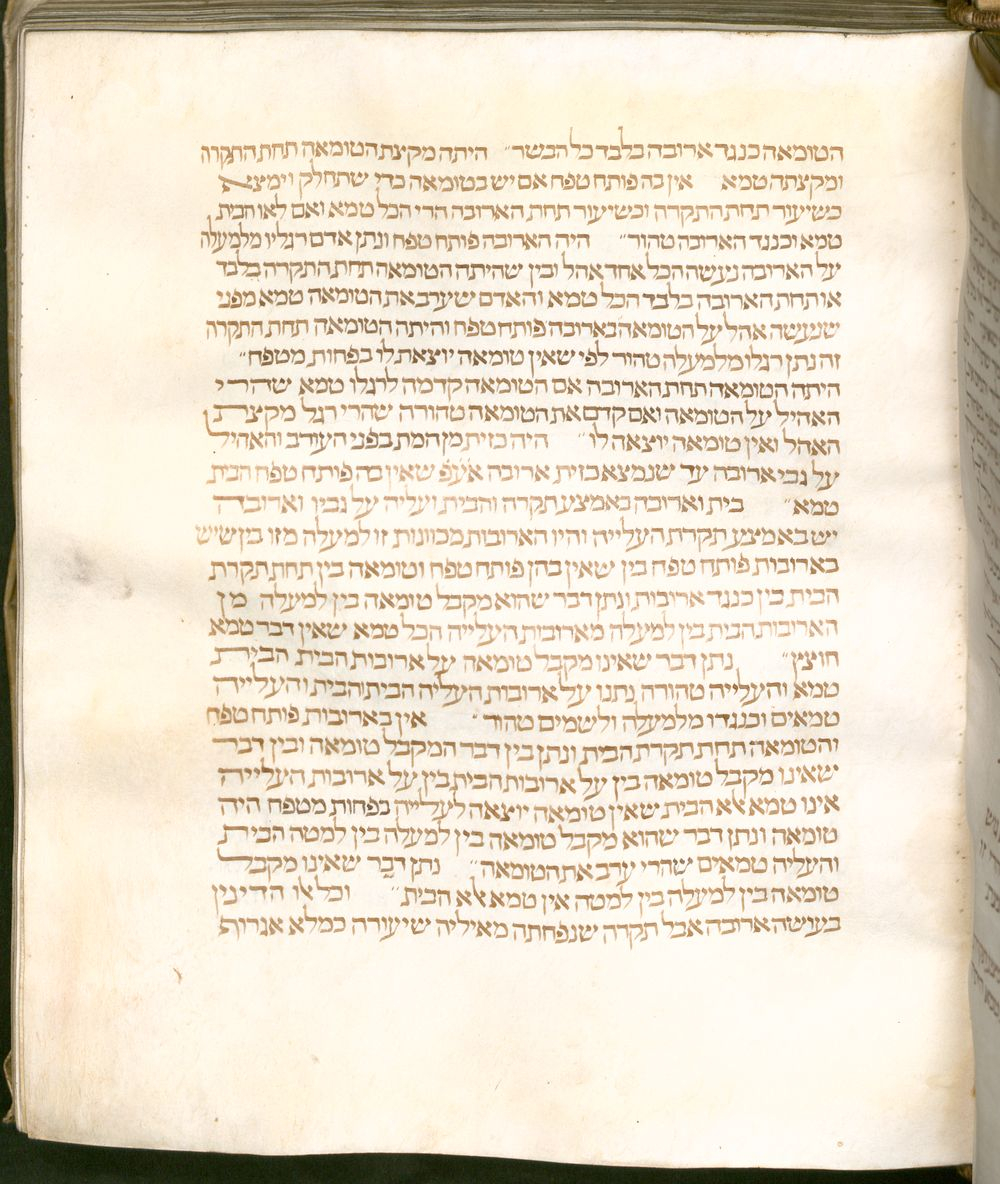 הטומאה כנגד ארובה בלבד כל הבשר״ היתה מקצת הטומאה תחת התקרה
ומקצתה טמא אין בה פותח טפח אם יש בטומאה כדי שתחלק וימצא
כשיעור תחת התקרה וכשיעור תחת הארובה הרי הכל טמא ואם לאו הבית
טמא וכנגד הארובה טהור״ היה הארובה פותח טפח ונתן אדם רגליו מלמעלה
על הארובה נעשה הכל אחד אהל ובין שהיתה הטומאה תחת התקרה בלבד
או תחת הארובה בלבד הכל טמא והאדם שערב את הטומאה טמא מפני
שנעשה אהל על הטומאה בארובה פותח טפח והיתה הטומאה תחת התקרה
זה נתן רגלו מלמעלה טהור לפי שאין טומאה יוצאת לו בפחות מטפח״
היתה הטומאה תחת הארובה אם הטומאה קדמה לרגלו טמא שהרי
האהיל על הטומאה ואם קדם את הטומאה טהורה שהרי רגל מקצת
האהל ואין טומאה יוצאה לו״ היה כזית מן המת בפני העורב והאהיל
על גבי ארובה עד שנמצא כזית ארובה אע״פ שאין בה פותח טפח הבית
טמא״ בית וארובה באמצע תקרה והבית ועליה על גביו וארובה
יש באמצע תקרת העלייה והיו הארובות מכוונות זו למעלה מזו בין שיש
בארובות פותח טפח בין שאין בהן פותח טפח וטומאה בין תחת תקרת
הבית בין כנגד ארובות ונתן דבר שהוא מקבל טומאה בין למעלה מן
הארובות הבית בין למעלה מארובות העלייה הכל טמא שאין דבר טמא
חוצץ״ נתן דבר שאינו מקבל טומאה על ארובות הבית הבית
טמא והעלייה טהורה נתנו על ארובות העליה הבית והבית והעלייה
טמאים וכנגדו מלמעלה ולשמים טהור״ אין בארובות פותח טפח
והטומאה תחת תקרת הבית ונתן בין דבר המקבל טומאה ובין דבר
שאינו מקבל טומאה בין על ארובות הבית בין על ארובות העלייה
אינו טמא אלא הבית שאין טומאה יוצאה לעלייה בפחות מטפח היה
טומאה ונתן דבר שהוא מקבל טומאה בין למעלה בין למטה הבית
והעליה טמאים שהרי ערב את הטומאה״ נתן דבר שאינו מקבל
טומאה בין למעלה בין למטה אין טמא אלא הבית״ וכל אלו הדינין
בעושה ארובה אבל תקרה שנפחתה מאיליה שיעורה כמלא אגרוף